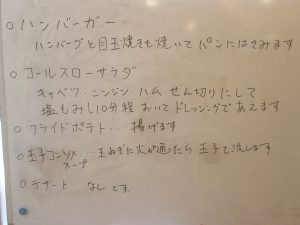 ○ハンバーガー
ハンバーグと目玉焼きを焼いてパンにはさみます
○コールスローサラダ
キャベツ・ニンジン ハム せん切りにして
塩もみし10分程おいてドレッシングであえます
○フライドポテト・・・・揚げます
○玉子コンソメ・・・玉ねぎに火が通ったら玉子を流します
スープ
○デザート なしです。